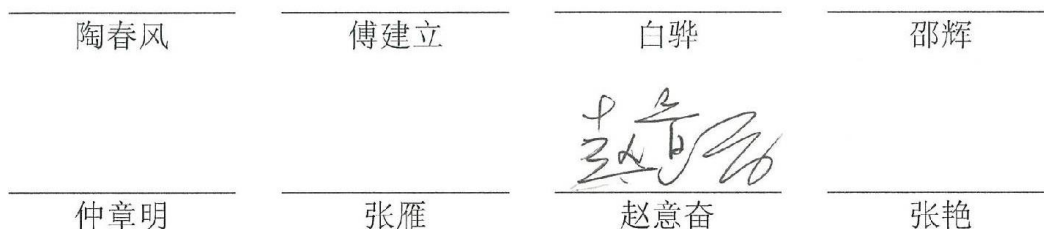 陶春风 傅建立 白骅 邵辉
赵意奋
仲章明 张雁 赵意奋 张艳